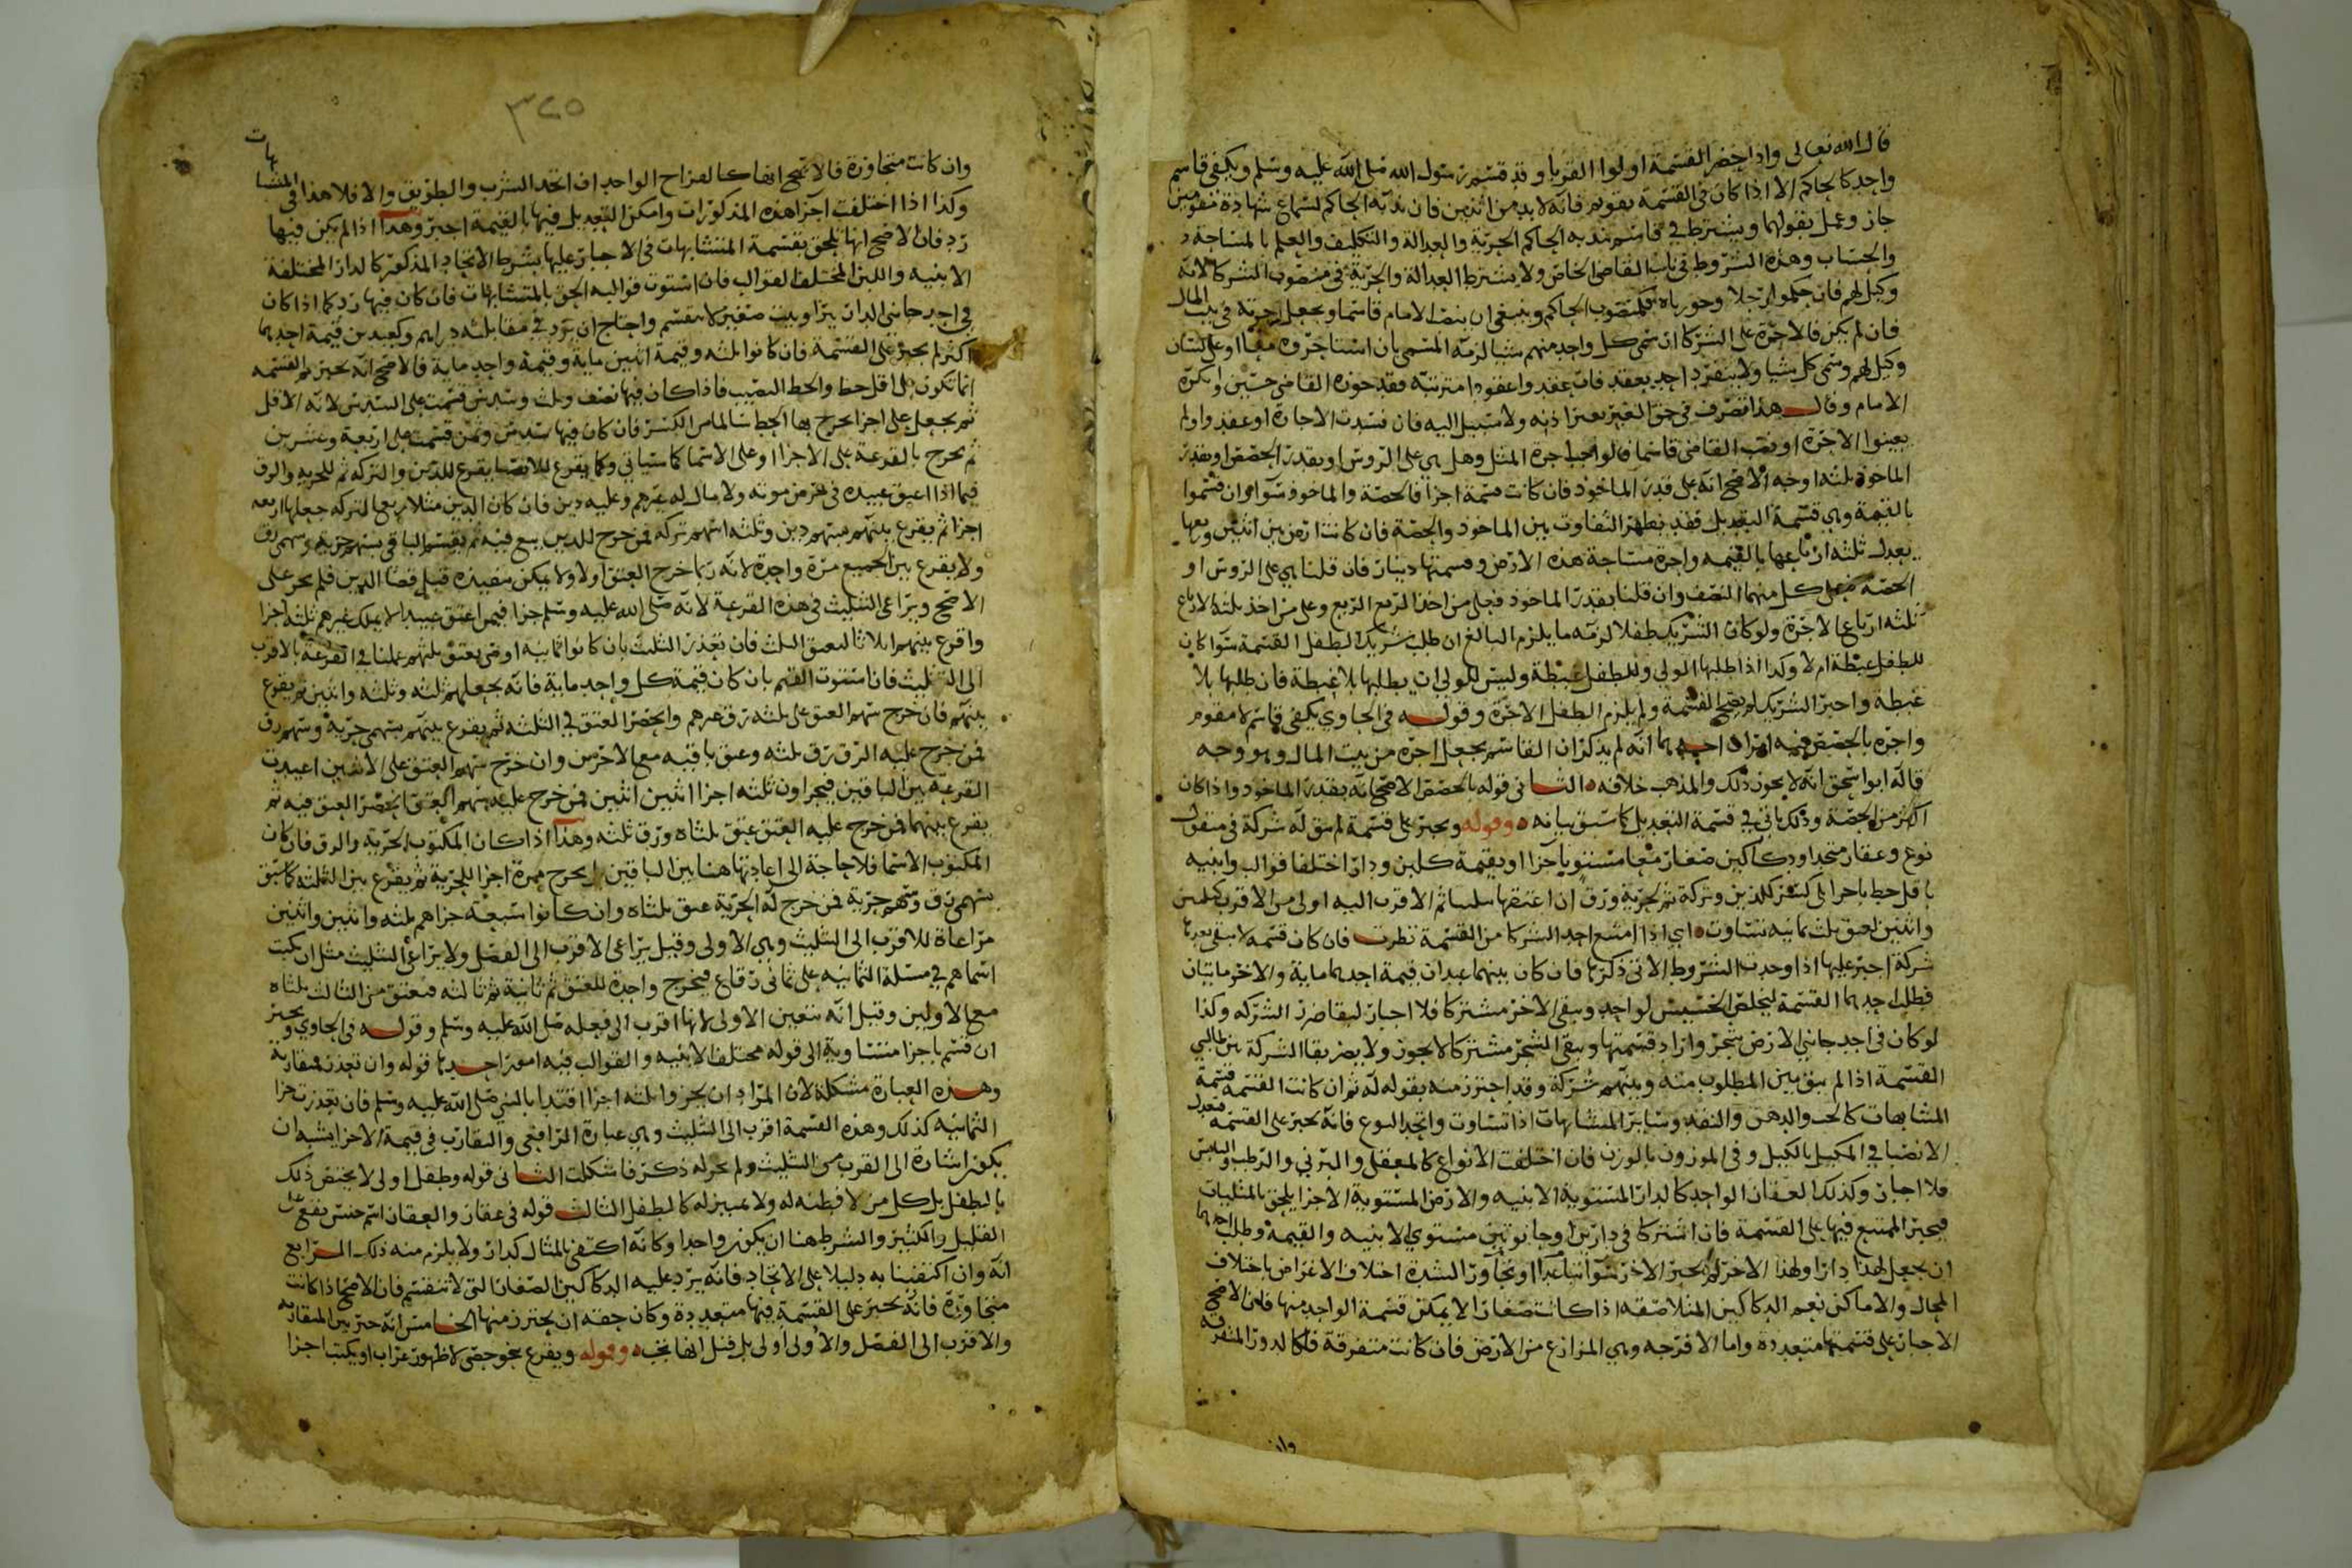 قال الله تعالى واذا حضر القسمة اولوا القربا وقد قسم رسول الله صلى الله عليه وسلم ويكفي قاسم
واحد كالحاكم الا اذا كان في القسمة تقويم فانه لابد من اثنين فان ندبه الحاكم لسماع شهادة مقومين
جاز وعمل بقولهما ويشترط في قاسم ندبه الحاكم الحرية والعدالة والتكليف والعلم بالمساحة
والحساب وهذه الشروط في نايب القاضي الخاص ولا يشترط العدالة والحرية في منصوب الشركا لانه
وكيل لهم فان حكموا رجلا وجوزناه فكمنصوب الحاكم وينبغي ان ينصب الامام قاسما ويجعل اجرته في بيت المال
فان لم يكن فالاجرة على الشركا ان سمى كل واحد منهم شيا لزمه المسمى بان استاجروه معا او على لسان
وكيل لهم وسمى كل شيا ولا ينفرد احد بعقد فان عقد واعقودا مترتبه فقد جوزه القاضي حسين وانكره
الامام وقال هذا تصرف في حق الغير بغير اذنه ولا سبيل اليه فان فسدت الاجارة او عقد ولم
يعينوا الاجرة او نصب القاضي قاسما فالواجب اجرة المثل وهل هي على الروس او بقدر الحصص او بقدر
الماخوذ ثلثه اوجه الاصح انه على قدر الماخوذ فان كانت قسمة اجزا فالحصة والماخوذ سوا وان قسموا
بالقيمة وهي قسمة التعديل فقد يظهر التفاوت بين الماخوذ والحصة فان كانت ارض بين اثنين ربعها
يعدل ثلثه ارباعها بالقيمه واجرة مساحة هذه الارض وقسمتها ديناران فان قلنا هي على الروس او
الحصة فعلى كل منهما النصف وان قلنا بقدر الماخوذ فعلى من اخذ الربع الربع وعلى من اخذ ثلثه الارباع
ثلثه ارباع الاجرة ولو كان الشريك طفلا لزمه ما يلزم البالغ ان طلب شريك الطفل القسمة سوا كان
للطفل غبطة ام لا وكذا اذا طلبها الولي وللطفل غبطة وليس للولي ان يطلبها بلا غبطة فان طلبها بلا
غبطة واجبر الشريك لم تصح القسمة ولم يلزم الطفل الاجرة وقوله في الحاوي يكفي قاسم لا مقوم
واجره بالحصص فيه امران احدهما انه لم يذكر ان القاسم يجعل اجره من بيت المال وهو وجه
قاله ابو اسحق انه لا يجوز ذلك والمذهب خلافه الثاني قوله بالحصص الاصح انه بقدر الماخوذ واذا كان
اكثر من الحصة وذلك ياتي في قسمة التعديل كما سبق بيانه وقوله ويجبر على قسمة لم تبق له شركة في منقول
نوع وعقار متحد او دكاكين صغار معا مستويا اجزا او بقيمة كلبن ودار اختلفا قوالب وابنيه
باقل حظ باجزا بلا كسر كالدين وتركه ثم بحرية ورق
واثنين لعتق ثلث ثمانيه تساوت اي اذا امتنع احد الشركا من القسمة نظرت فان كان قسمه لا يبقى بعدها
شركة اجبر عليها اذا وجدت الشروط الاتي ذكرها فان كان بينهما عبدان قيمة احدهما ماية والاخر مايتان
فطلب احدهما القسمة ليخلص الخسيس لواحد ويبقى الاخر مشتركا فلا اجبار لبقا ضرر الشركه وكذا
لو كان في احد جانبي الارض شجر واراد قسمتها ويبقى الشجر مشتركا لا يجوز ولا يضر بقا الشركة بين طالبي
القسمة اذا لم يبق بين المطلوب منه وبينهم شركة وقد احترز منه بقوله له ثم ان كانت القسمه قسمة
المتشابهات كالحب والدهن والنقد وساير المتشابهات اذا تساوت واتحد النوع فانه يجبر على القسمه فتعدل
الانصبا في المكيل بالكيل وفي الموزون بالوزن فان اختلفت الانواع كالمعقلي والبرني والرطب واليابس
فلا اجبار وكذلك العقار الواحد كالدار المستوية الابنيه والارض المستوية الاجزا يلحق بالمثليات
فيجبر الممتنع فيها على القسمة فان اشتركا في دارين او حانوتين مستوي الابنيه والقيمة وطلب احدهما
ان يجعل لهذا دارا ولهذا الاخر لم يجبر الاخر سوا تباعدا او تجاورا لشدة اختلاف الاغراض باختلاف
المحال والاماكن نعم الدكاكين المتلاصقه اذا كانت صغارا لا يمكن قسمة الواحد منها فان الاصح
الاجبار على قسمتها متعدده واما الاقرحه وهي المزارع من الارض فان كانت متفرقة فكالدور المتفرقه
وان
٣٢٥
وان كانت متجاورة فالاصح انها كالقراح الواحد ان اتحد الشرب والطريق والا فلا هذا في المتشابهات
وكذا اذا اختلفت اجزا هذه المذكورات وامكن التعديل فيها بالقيمة اجبر وهذا اذا لم يكن فيها
رد فان الاصح انها تلحق بقسمة المتشابهات في الاجبار عليها بشرط الاتحاد المذكور كالدار المختلفة
الابنيه واللبن المختلف القوالب فان استوت قوالبه الحق بالمتشابهات فان كان فيها رد كما اذا كان
في احد جانبي الدار بيرا وبيت صغير لا ينقسم واحتاج ان يرد في مقابلته دراهم وكعبدين قيمة احدهما
اكثر لم يجبر على القسمة فان كانوا ثلثه وقيمة اثنين ماية وقيمة واحد ماية فالاصح انه يجبر ثم القسمه
انما تكون على اقل حظ والحظ النصيب فاذا كان فيها نصف وثلث وسدس قسمت على السدس لانه الاقل
ثم يجعل على اجزا يخرج بها الحظ سالما من الكسر فان كان فيها سدس وثمن قسمت على اربعة وعشرين
ثم يخرج بالقرعة على الاجزا او على الاسما كما سياتي وكما يقرع للانصبا يقرع للدين والتركه ثم للحرية والرق
فيما اذا اعتق عبيده في مرض موته ولا مال له غيرهم وعليه دين فان كان الدين مثلا ربع التركه جعلها اربعه
اجزا ثم يقرع بينهم بسهم دين وثلثه اسهم تركه فمن خرج للدين بيع فيه ثم يقسم الباقي بسهم حريه وسهمي رق
ولا يقرع بين الجميع مرة واحدة لانه ربما خرج العتق اولا ولا يمكن تنفيذه قبل قضا الدين فلم يجز على
الاصح ويراعى التثليث في هذه القرعة لانه صلى الله عليه وسلم جزا فيمن اعتق عبيدا لا يملك غيرهم ثلثه اجزا
واقرع بينهم اثلاثا لتعيق الثلث فان تعذر التثليث بان كانوا ثمانيه اوصى بعتق ثلثهم عملنا في القرعة بالاقرب
الى التثليث فان استوت القيم بان كان قيمة كل واحد ماية فانه يجعلهم ثلثه وثلثه واثنين ثم يقرع
بينهم فان خرج سهم العتق على ثلثه رق غيرهم وانحصر العتق في الثلثه ثم يقرع بينهم بسهمي حرية وسهم رق
فمن خرج عليه الرق رق ثلثه وعتق باقيه مع الاخرين وان خرج سهم العتق على الاثنين اعيدت
القرعه بين الباقين فيجزاون ثلثه اجزا اثنين اثنين فمن خرج عليه سهم العتق انحصر العتق فيه ثم
يقرع بينهما فمن خرج عليه العتق عتق ثلثاه ورق ثلثه وهذا اذا كان المكتوب الحرية والرق فان كان
المكتوب الاسما فلا حاجة الى اعادتها هنا بين الباقين بل يخرج مرة اخرا للحرية ثم يقرع بين الثلثه كما سبق
بسهمي رق وسهم حرية فمن خرج له الحرية عتق ثلثاه وان كانوا سبعة جزاهم ثلثه واثنين واثنين
مراعاة للاقرب الى التثليث وهي الاولى وقيل يراعى الاقرب الى الفصل ولا يراعى التثليث مثل ان يكتب
اسماهم في مسلة الثمانيه على ثماني رقاع فيخرج واحدة للعتق ثم ثانية ثم ثالثه فيعتق من الثالث ثلثاه
مع الاولين وقيل انه تتعين الاولى لانها اقرب الى فعله صلى الله عليه وسلم وقوله في الحاوي ويجبر
ان قسم باجزا متساوية الى قوله مختلف الابنيه والقوالب فيه امور احدها قوله وان تعذر فمقاربة
وهذه العبارة مشكلة لان المراد ان يجزوا ثلثه اجزا اقتدا بالنبي صلى الله عليه وسلم فان تعذرت جزا
الثمانيه كذلك وهذه القسمة اقرب الى التثليث وهي عبارة الرافعي والتقارب في قيمة الاجزا يشبه ان
يكون اشارة الى القرب من التثليث ولم يجر له ذكر فاشكلت الثاني قوله وطفل اولى لا يختص ذلك
بالطفل بل كل من لا فطنه له ولا تمييز له كالطفل الثالث قوله في عقار والعقار اسم جنس يقع على
القليل والكثير والشرط هنا ان يكون واحدا وكانه اكتفى بالمثال كدار ولا يلزم منه ذلك الرابع
انه وان اكتفينا به دليلا على الاتحاد فانه يرد عليه الدكاكين الصغار التي لا تنقسم فان الاصح اذا كانت
متجاورة فانه يجبر على القسمة فيها متعددة وكان حقه ان يحترز منها الخامس انه خير بين المقاربه
والاقرب الى الفصل والاولى اولى بل قيل انها تجب وقوله ويقرع بخو حصى لا ظهور غراب او يكتب اجزا